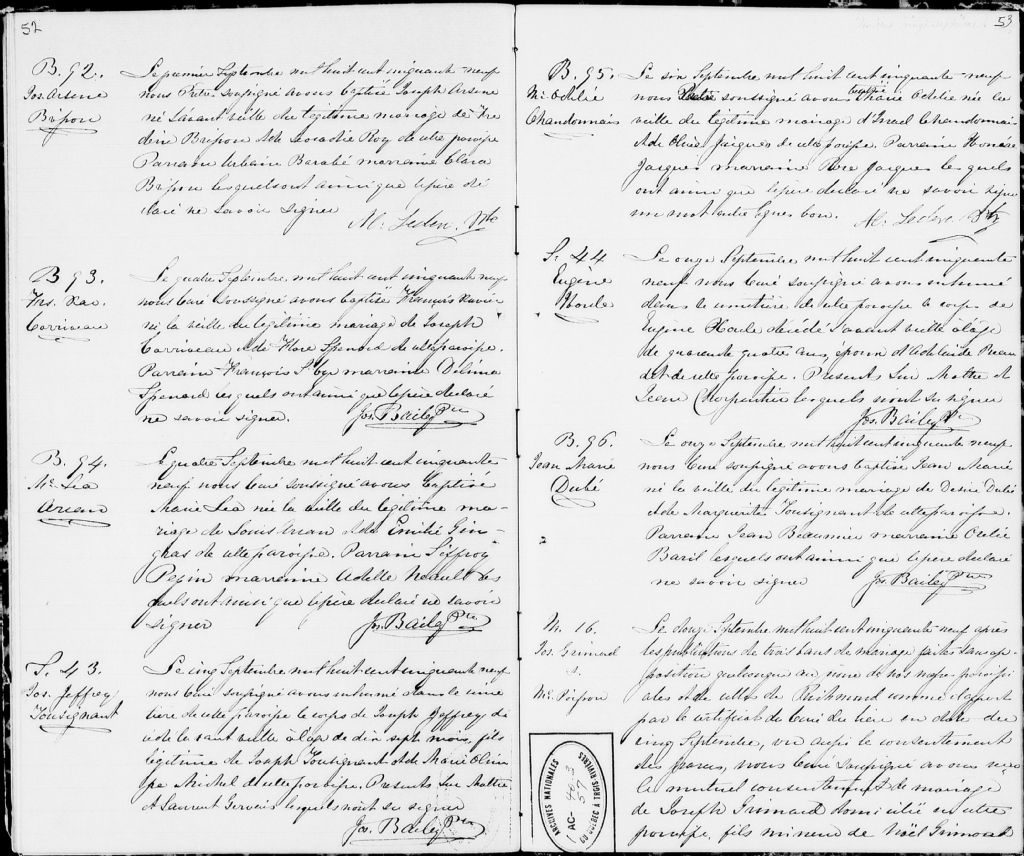 52
B. 92.
Jos. Arsène
Brisson
Le premier Septembre mil huit cent cinquante-neuf
nous Prêtre soussigné avons baptisé Joseph Arsène
né l'avant veille du légitime mariage de
Brisson et de Léocadie Roy de cette paroisse
Parrain Urbain Barabé marraine Clara
Brisson lesquels ont ainsi que le père dé
claré ne savoir signer
B 93.
Frs. Xav.
Corriveau
Le quatre Septembre mil huit cent cinquante neuf
nous Curé soussigné avons baptisé François Xavier
né la veille du légitime mariage de Joseph
Corriveau et de Flore Spenard de cette paroisse.
Parrain François marraine Delima
Spenard lesquels ont ainsi que le père déclaré
ne savoir signer.
Jos. Bailey Ptre
B. 94.
Me. Lea
Arcand
Le quatre Septembre mil huit cent cinquante
neuf nous Curé soussigné avons baptisé
Marie Lea née la veille du légitime ma-
riage de Louis Arcan et de Emilie Gin-
gras de cette paroisse. Parrain Joffroy
Pepin marraine Adelle les
quels ont ainsi que le père déclaré ne savoir
signer
Jos. Bailey Ptre
S. 43.
Jos. Jeffrey
Tousignant
Le cinq Septembre mil huit cent cinquante neuf
nous Curé soussigné avons inhumé dans le cime
tière de cette paroisse le corps de Joseph Jeffrey dé
cédé l'avant veille à l'age de dix sept mois, fils
légitime de Joseph Tousignant et de Marie Olim
pe Michel de cette paroisse. Presents Luc Mottre
et Laurent Gervais lesquels n'ont su signer
Jos. Bailey Ptre
53
B. 95.
Me. Odelie
Chandonnais
Le six Septembre mil huit cent cinquante-neuf
nous soussigné avons baptisé Marie Odelie née la
veille du légitime mariage d'Israel Chandonnais
et de Olive Jacques de cette paroisse. Parrain Honoré
Jacques marraine Rose Jacques lesquels
ont ainsi que le père déclaré ne savoir signer
un mot entre lignes bon.
S. 44
Eugène
Houle
Le onze Septembre mil huit cent cinquante
neuf nous Curé soussigné avons inhumé
dans le cimetière de cette paroisse le corps de
Eugène Houle décédé l'avant veille à l'age
de quarante quatre ans, époux d'Adelaide Beau
det de cette paroisse. Presents Luc Mottre et
Jean Charpentier lesquels n'ont su signer
Jos. Bailey Ptre
B. 96.
Jean Marie
Dubé
Le onze Septembre mil huit cent cinquante neuf
nous Curé soussigné avons baptisé Jean Marie
né la veille du légitime mariage de Desiré Dubé
et de Marguerite Tousignant de cette paroisse.
Parrain Jean Beaumier marraine Odelie
Baril lesquels ont ainsi que le père déclaré
ne savoir signer
Jos. Bailey Ptre
M. 16.
Jos. Grimard
&
Me. Brisson
Le douze Septembre mil huit cent cinquante neuf après
les publications de trois bans de mariage faites sans op-
position quelconque au prone de nos messes paroissi
ales et de celles de Richmond comme il appert
par le certificat du Curé du lieu en date du
cinq Septembre, vu aussi le consentement
des parens, nous Curé soussigné avons reçu
le mutuel consentement de mariage
de Joseph Grimard domicilié en cette
paroisse, fils mineur de Noël Grimard
ARCHIVES NATIONALES
DU QUEBEC A TROIS RIVIERES